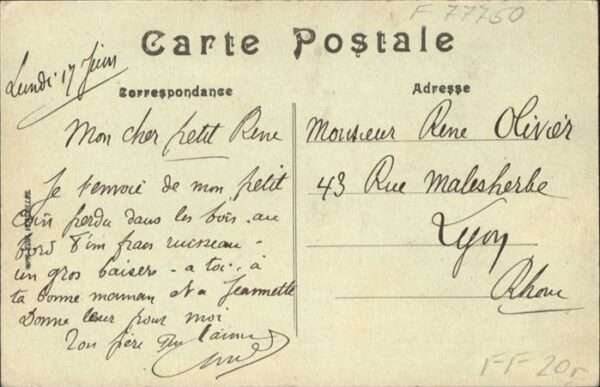 F 77760
Carte Postale
Lundi 17 Juin
Correspondance
Adresse
Mon cher petit Rene
Monsieur Rene Olivier
43 Rue Malesherbe
Lyon
Rhone
Je t'envoie de mon petit
coin perdu dans les bois au
bord d'un frais ruisseau -
un gros baisers - a toi, à
ta bonne maman et a Jeannette
Donne leur pour moi
Ton père qui t'aime
FF 20F